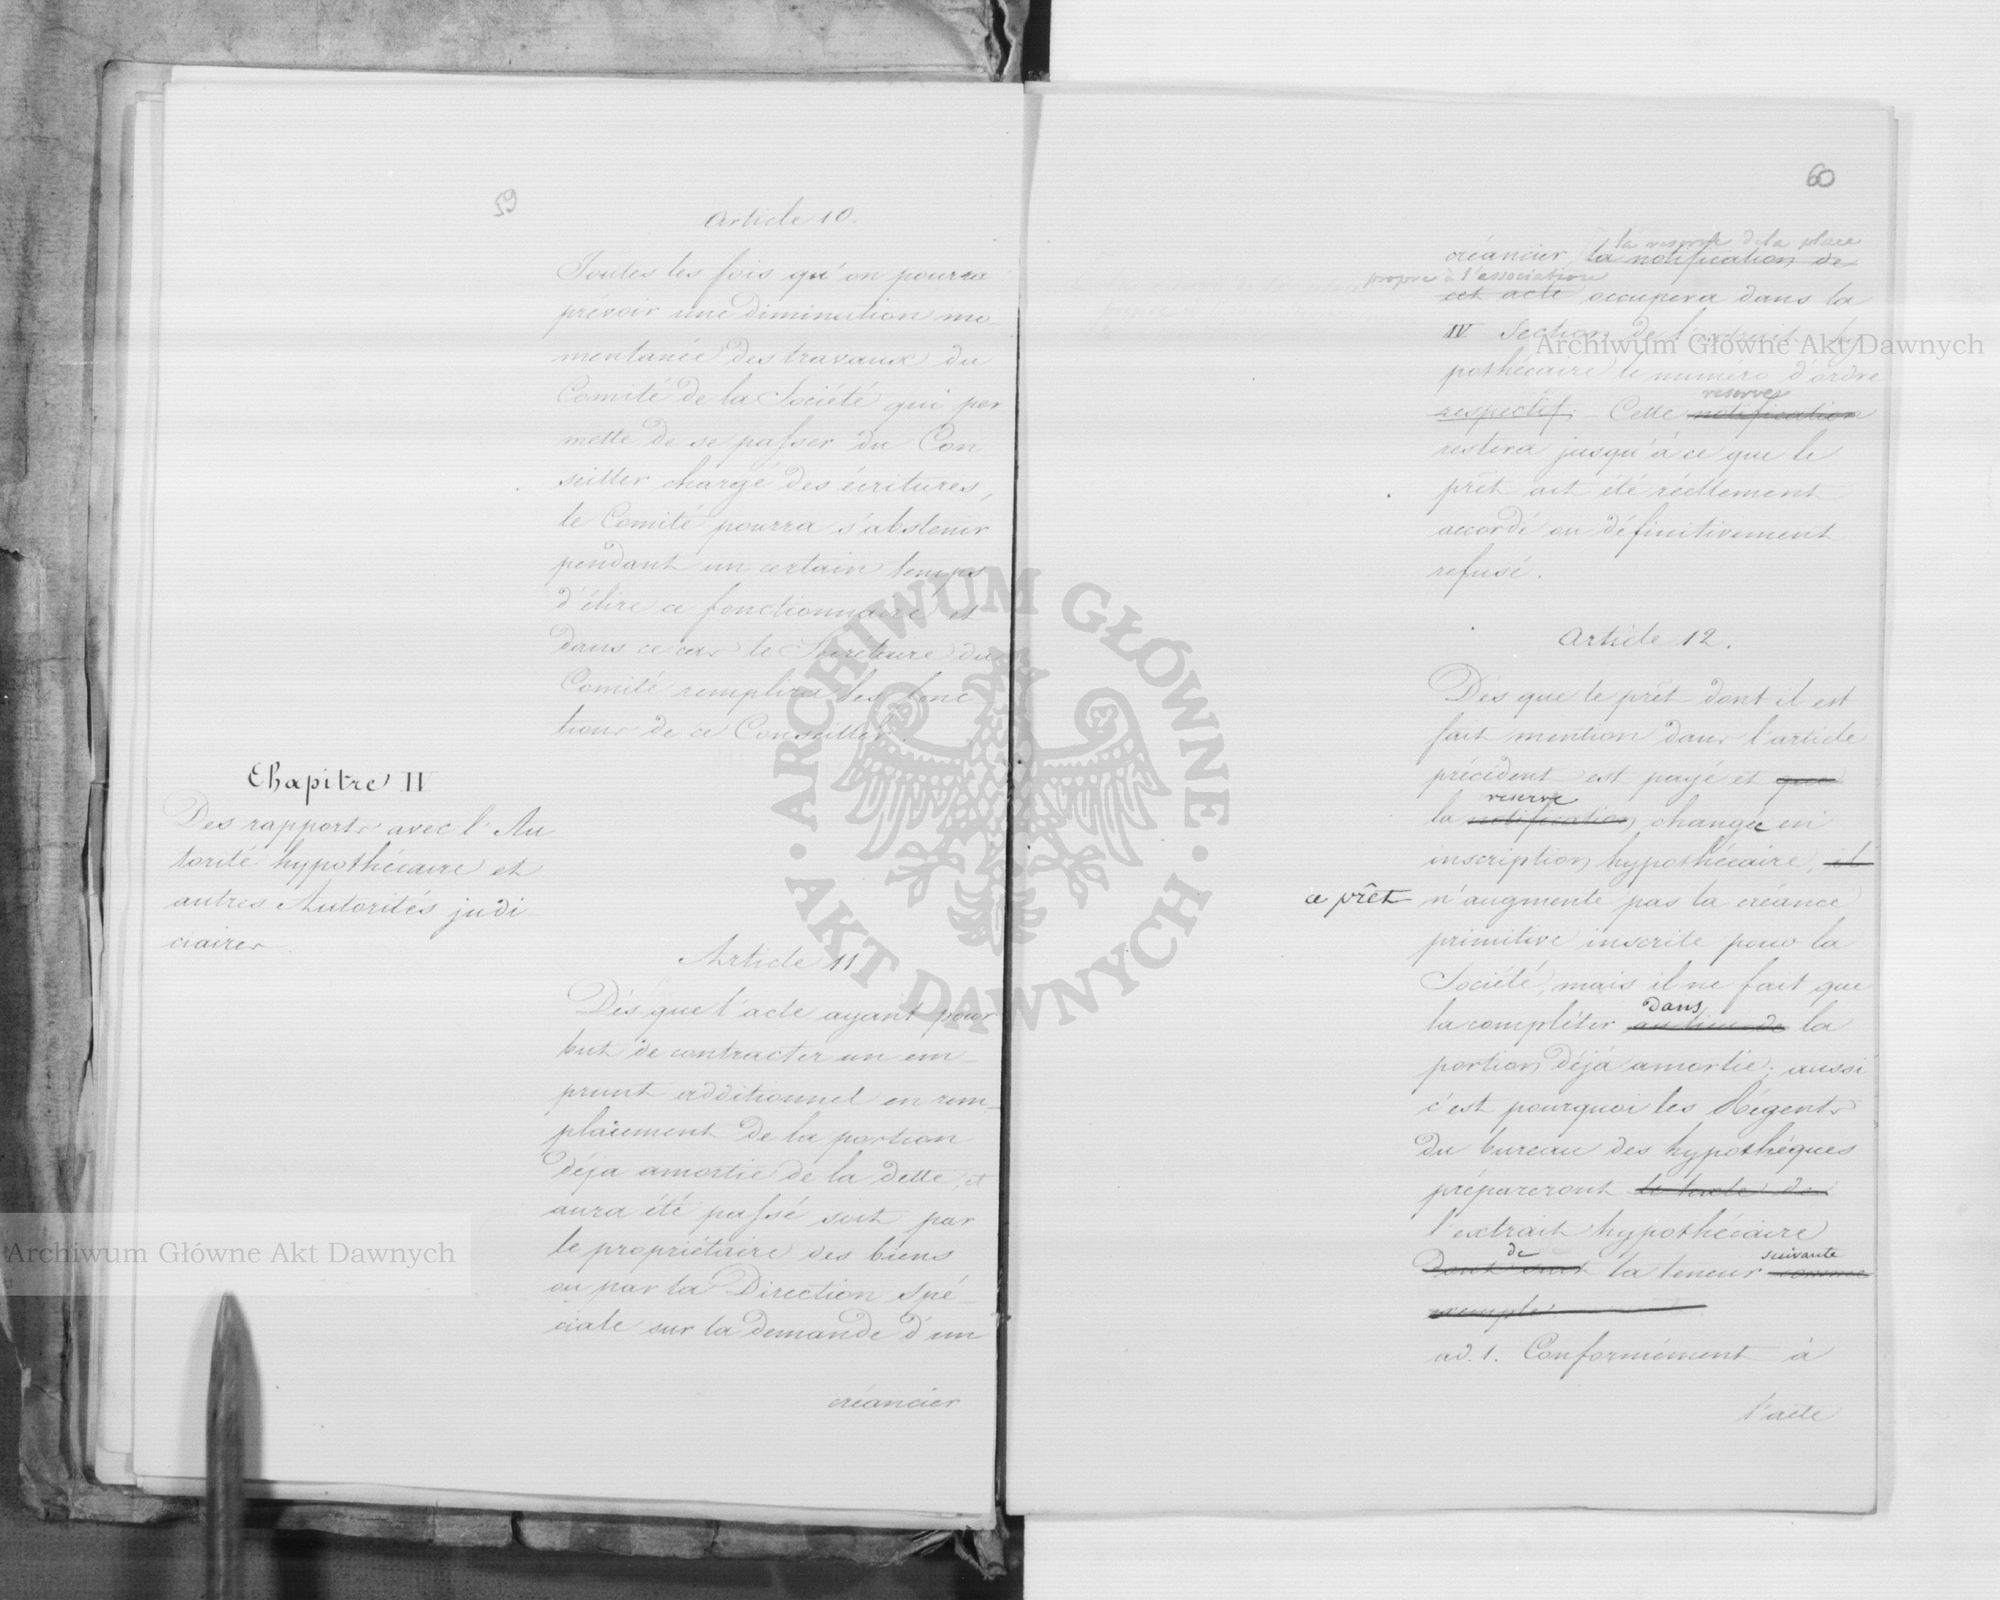 59
Article 10.
Toutes les fois qu'on pourra
prévoir une diminution mo-
mentanée des travaux du
Comité de la Société qui per
mette de se passer du Con
seiller chargé des écritures,
le Comité pourra s'abstenir
pendant un certain temps
d'élire ce fonctionnaire et
dans ce cas le Secrétaire du
Comité remplira les fonc-
tions de ce Conseiller.
Chapitre II
Des rapports avec l'Au-
torité hypothécaire et
autres Autorités judi-
ciaires.
Article 11
Dès que l'acte ayant pour
but de contracter un em-
prunt additionnel en rem-
placement de la portion
déja amortie de la dette, et
aura été passé soit par
le propriétaire des biens
ou par la Direction Spé-
ciale sur la demande d'un
créancier
60
la reserve de la place
créancier, la notification de
propre à l'association
cet acte occupera dans la
IV Section de l'extrait hy-
pothécaire le numéro d'ordre
reserve
respectif. Cette notification
restera jusqu'à ce que le
prêt ait été réellement
accordé ou définitivement
refusé.
Article 12.
Dès que le prêt dont il est
fait mention dans l'article
précédent est payé et que
reserve
la notification changée en
inscription hypothécaire, il
ce prêt n'augmente pas la créance
primitive inscrite pour la
Société, mais il ne fait que
dans
la compléter au lieu de la
portion déjà amortie; aussi
c'est pourquoi les Régents
du bureau des hypothéques
prépareront le texte de
l'extrait hypothécaire
de suivante
dont suit la teneur comme
exemple:
ad. 1. Conformément à
l'acte
Archiwum Główne Akt Dawnych
Archiwum Główne Akt Dawnych
ARCHIWUM GŁÓWNE
AKT DAWNYCH